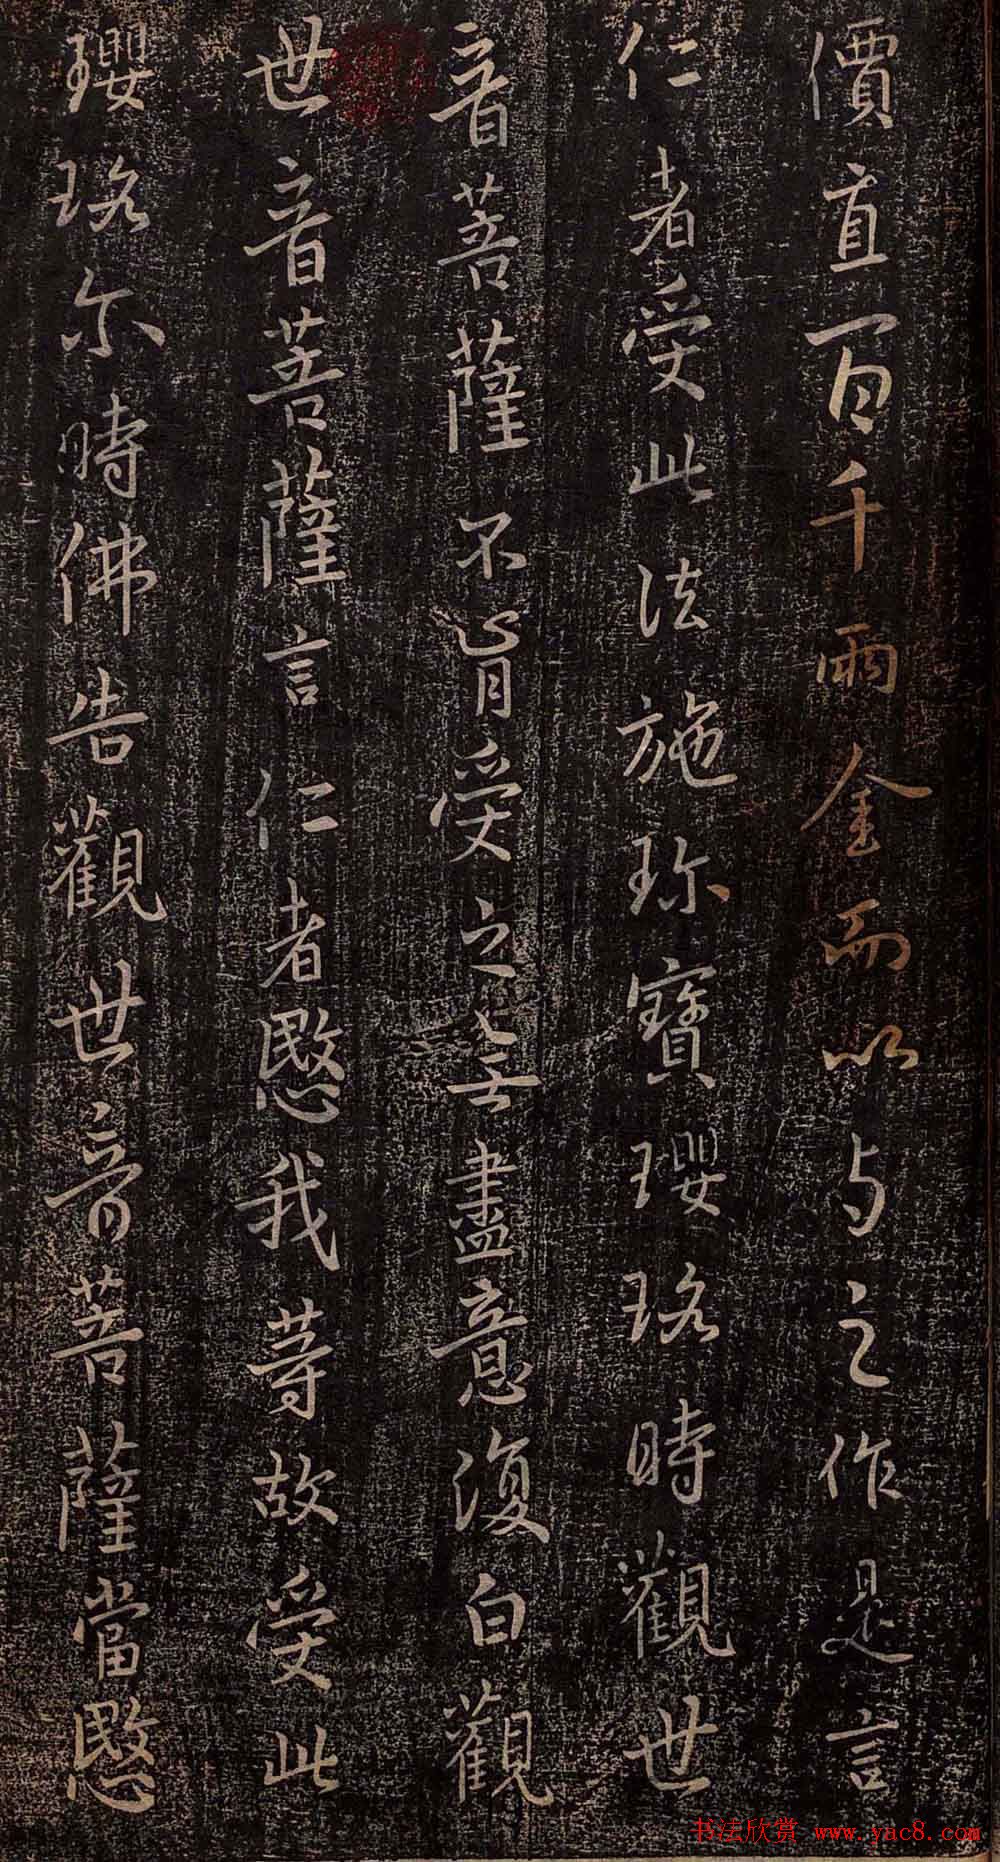 價直百千兩金而以与之作是言
仁者受此法施珎寶瓔珞時觀世
音菩薩不肯受之无盡意復白觀
世音菩薩言仁者愍我等故受此
瓔珞尒時佛告觀世音菩薩當愍
书法欣赏 www.yac8.com